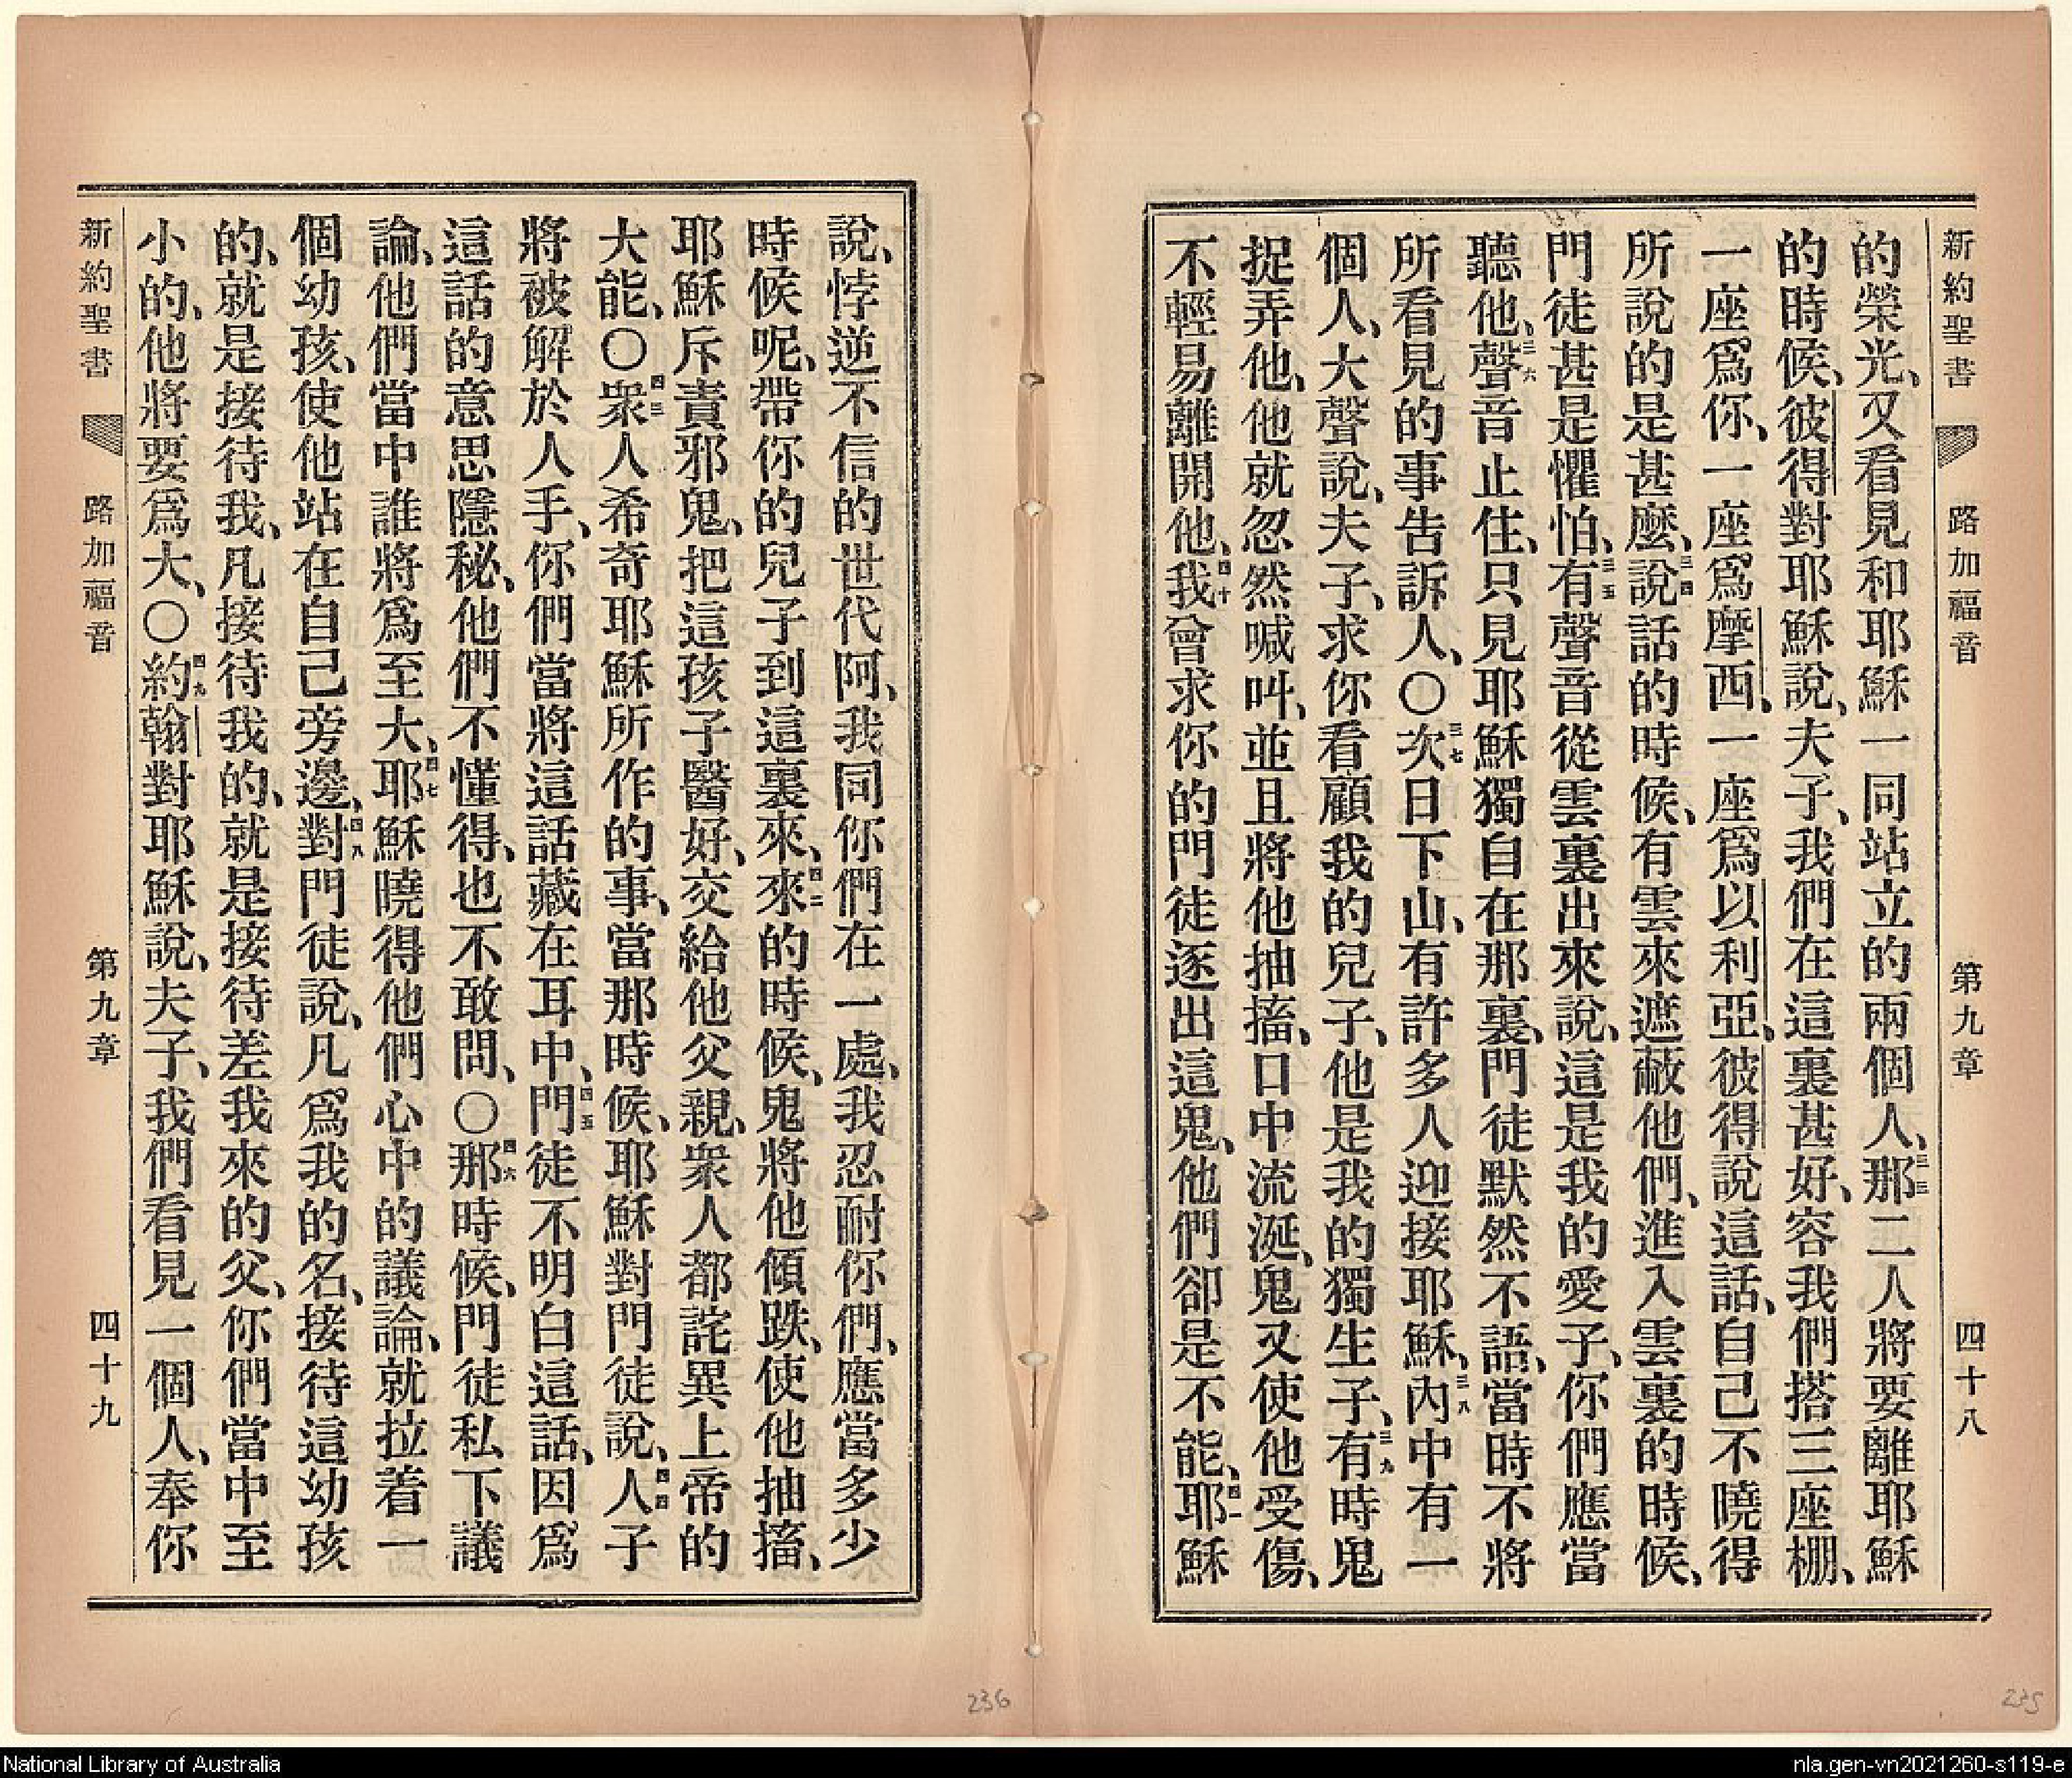 新約聖書 路加福音 第九章 四十八
的榮光、又看見和耶穌一同站立的兩個人、三三那二人將要離耶穌
的時候、彼得對耶穌說、夫子、我們在這裏甚好、容我們搭三座棚、
一座爲你、一座爲摩西、一座爲以利亞、彼得說這話、自己不曉得
所說的是甚麼、三四說話的時候、有雲來遮蔽他們、進入雲裏的時候、
門徒甚是懼怕、三五有聲音從雲裏出來說、這是我的愛子、你們應當
聽他、三六聲音止住、只見耶穌獨自在那裏、門徒默然不語、當時不將
所看見的事告訴人、〇三七次日下山、有許多人迎接耶穌、三八內中有一
個人、大聲說、夫子、求你看顧我的兒子、他是我的獨生子、三九有時鬼
捉弄他、他就忽然喊叫、並且將他抽搐、口中流涎、鬼又使他受傷、
不輕易離開他、四十我曾求你的門徒逐出這鬼、他們卻是不能、四一耶穌
說、悖逆不信的世代阿、我同你們在一處、我忍耐你們、應當多少
時候呢、帶你的兒子到這裏來、四二來的時候、鬼將他傾跌、使他抽搐、
耶穌斥責邪鬼、把這孩子醫好、交給他父親、衆人都詫異上帝的
大能、〇四三衆人希奇耶穌所作的事、當那時候、耶穌對門徒說、四四人子
將被解於人手、你們當將這話藏在耳中、四五門徒不明白這話、因爲
這話的意思隱秘、他們不懂得、也不敢問、〇四六那時候、門徒私下議
論、他們當中誰將爲至大、四七耶穌曉得他們心中的議論、就拉着一
個幼孩、使他站在自己旁邊、四八對門徒說、凡爲我的名、接待這幼孩
的、就是接待我、凡接待我的、就是接待差我來的父、你們當中至
小的、他將要爲大、〇四九約翰對耶穌說、夫子、我們看見一個人、奉你
新約聖書 路加福音 第九章 四十九
236
235
National Library of Australia
nla.gen-vn2021260-s119-e